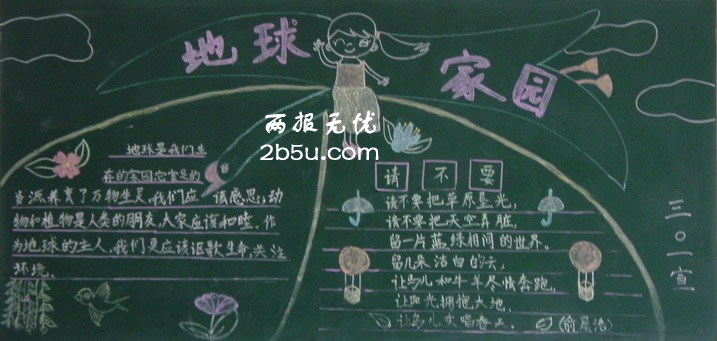 地球
家园
两报无忧
2b5u.com
地球是我们生
存的家园您宝贵的
资源养育了万物生灵,我们应该感恩;动
物和植物是人类的朋友,大家应该和睦。作
为地球的主人,我们更应该讴歌生命,关注
环境。
请不要
请不要把草原垦光,
请不要把天空弄脏,
留一片蓝,绿相间的世界。
留几朵洁白的云,
让马儿和牛羊尽情奔跑,
让阳光拥抱大地,
让鸟儿欢唱春天。
三〇一宣